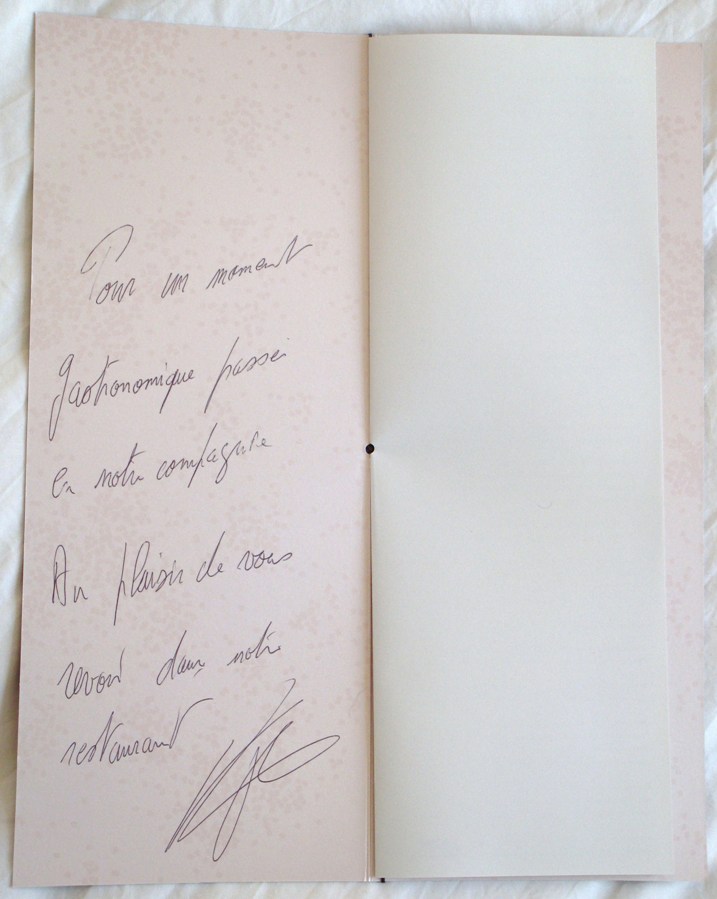 Pour un moment
gastronomique passé
en notre compagnie
Au plaisir de vous
revoir dans notre
restaurant